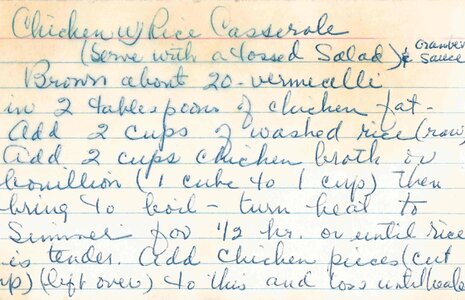 Chicken w/ Rice Casserole
(Serve with a tossed Salad) & Cranberry Sauce
Brown about 20 - vermicelli
in 2 tablespoons of chicken fat -
Add 2 cups of washed rice (raw)
Add 2 cups chicken broth or
bouillion (1 cube to 1 cup) then
bring to boil - turn heat to
Simmer for 1/2 hr. or until rice
is tender. Add chicken pieces (cut
up) (left over) to this and toss until